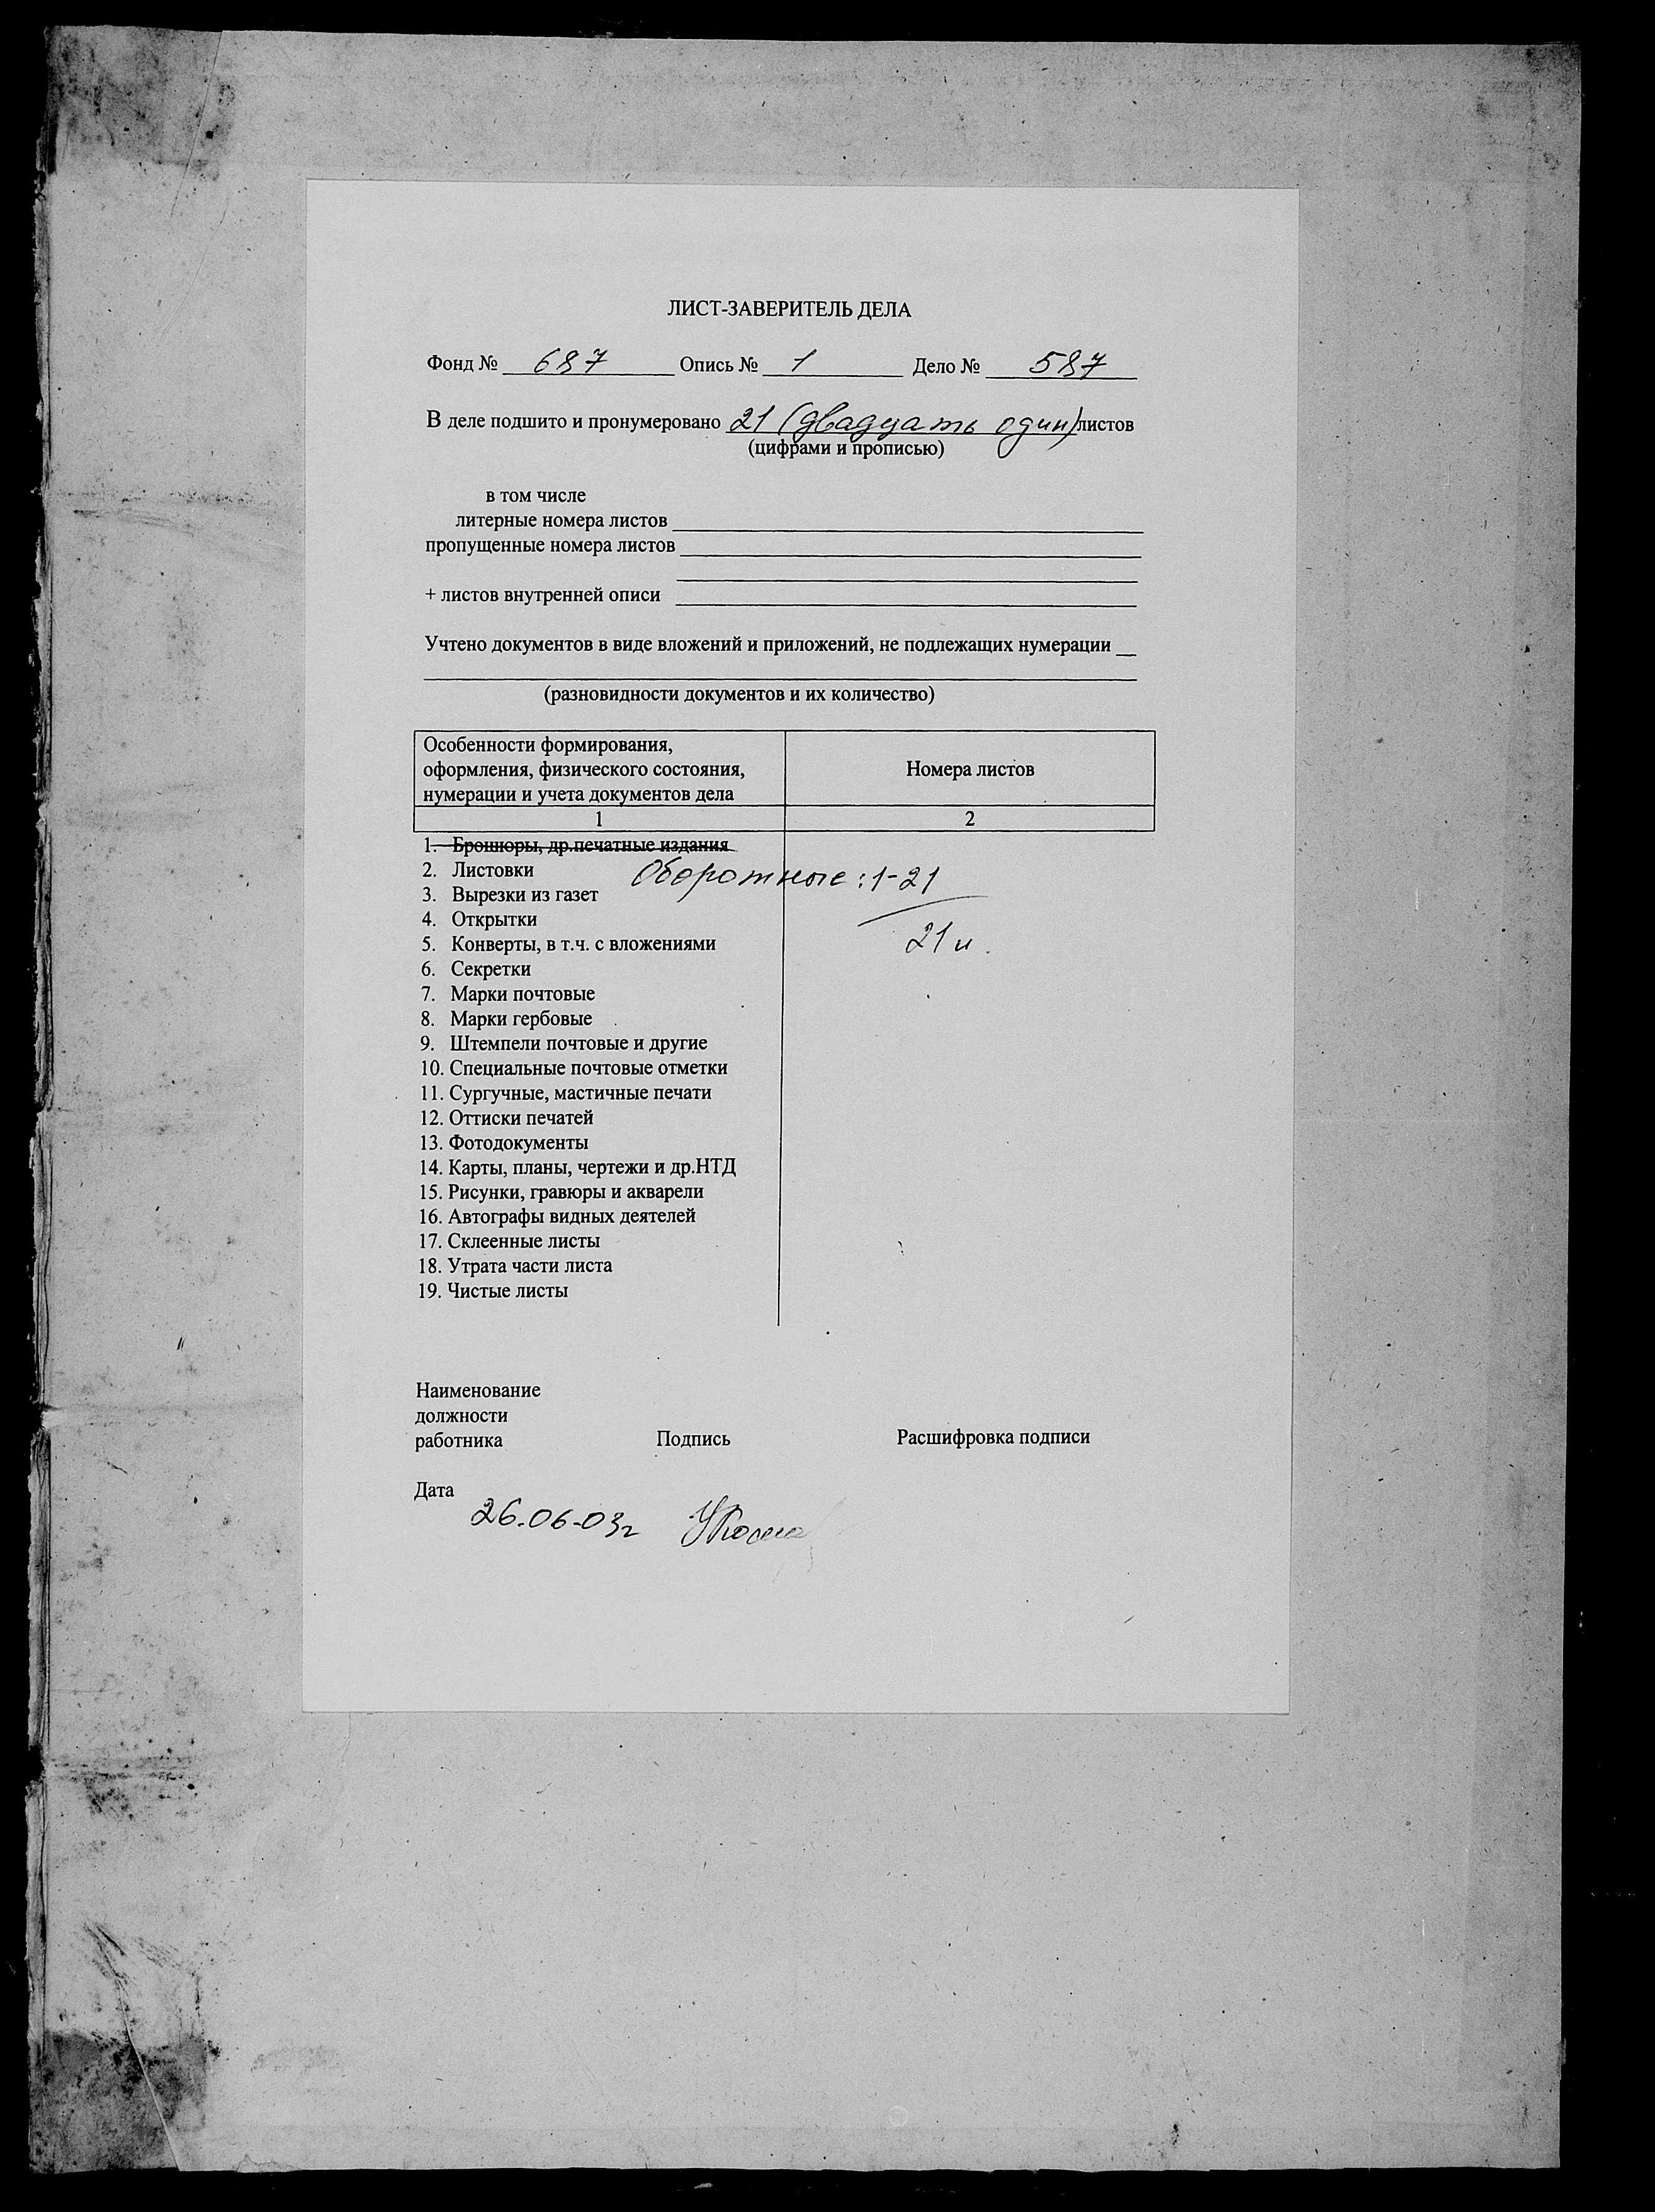 ЛИСТ-ЗАВЕРИТЕЛЬ ДЕЛА
Фонд № 687 Опись № 1 Дело № 587
В деле подшито и пронумеровано 21 (двадцать один) листов
(цифрами и прописью)
в том числе
литерные номера листов
пропущенные номера листов
+ листов внутренней описи
Учтено документов в виде вложений и приложений, не подлежащих нумерации
(разновидности документов и их количество)
Особенности формирования,
оформления, физического состояния,
нумерации и учета документов дела
Номера листов
1 2
1. Брошюры, др.печатные издания
2. Листовки
Оборотные: 1-21
3. Вырезки из газет
4. Открытки
5. Конверты, в т.ч. с вложениями
21
6. Секретки
7. Марки почтовые
8. Марки гербовые
9. Штемпели почтовые и другие
10. Специальные почтовые отметки
11. Сургучные, мастичные печати
12. Оттиски печатей
13. Фотодокументы
14. Карты, планы, чертежи и др.НТД
15. Рисунки, гравюры и акварели
16. Автографы видных деятелей
17. Склеенные листы
18. Утрата части листа
19. Чистые листы
Наименование
должности
работника Подпись Расшифровка подписи
Дата
26.06-03г